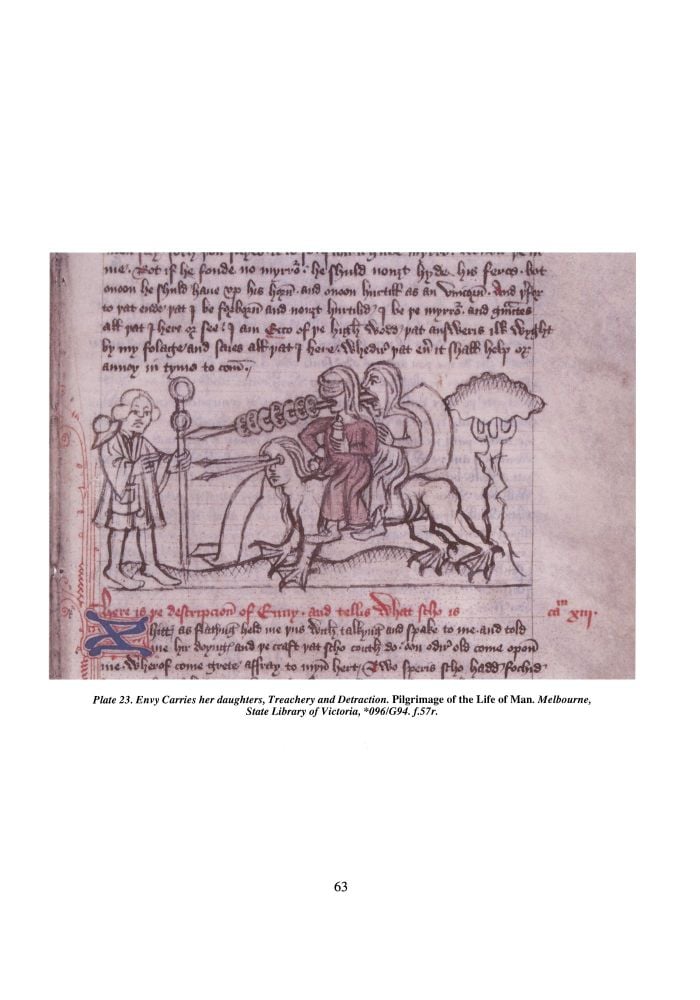 me. Bot if he fonde no myrro. he shuld nouȝt hyde his bot
onoon he shuld haue vp his horn. and onoon hurtill as an Vnicorn. And þfor
to þat ende þat I be forborn and nouȝt hurtild / I be þe myrro. and
all þat I here or see / I am Ecco of þe high wode þat answeris ilk wyght
by my folage and saies all þat I here. Whedur þat eu it shall help or
annoy in tyme to com./
Here is þe descripcion of Enuy. and tellis What scho is cam xiij.
as held me þus with talkyng and spake to me and told
me hir doyng and þe craft þat scho couth do. old come opon
me. Wherof come grete affray to myn hert / Two speris scho hadd
Plate 23. Envy Carries her daughters, Treachery and Detraction. Pilgrimage of the Life of Man. Melbourne,
State Library of Victoria, *096/G94. f.57r.
63